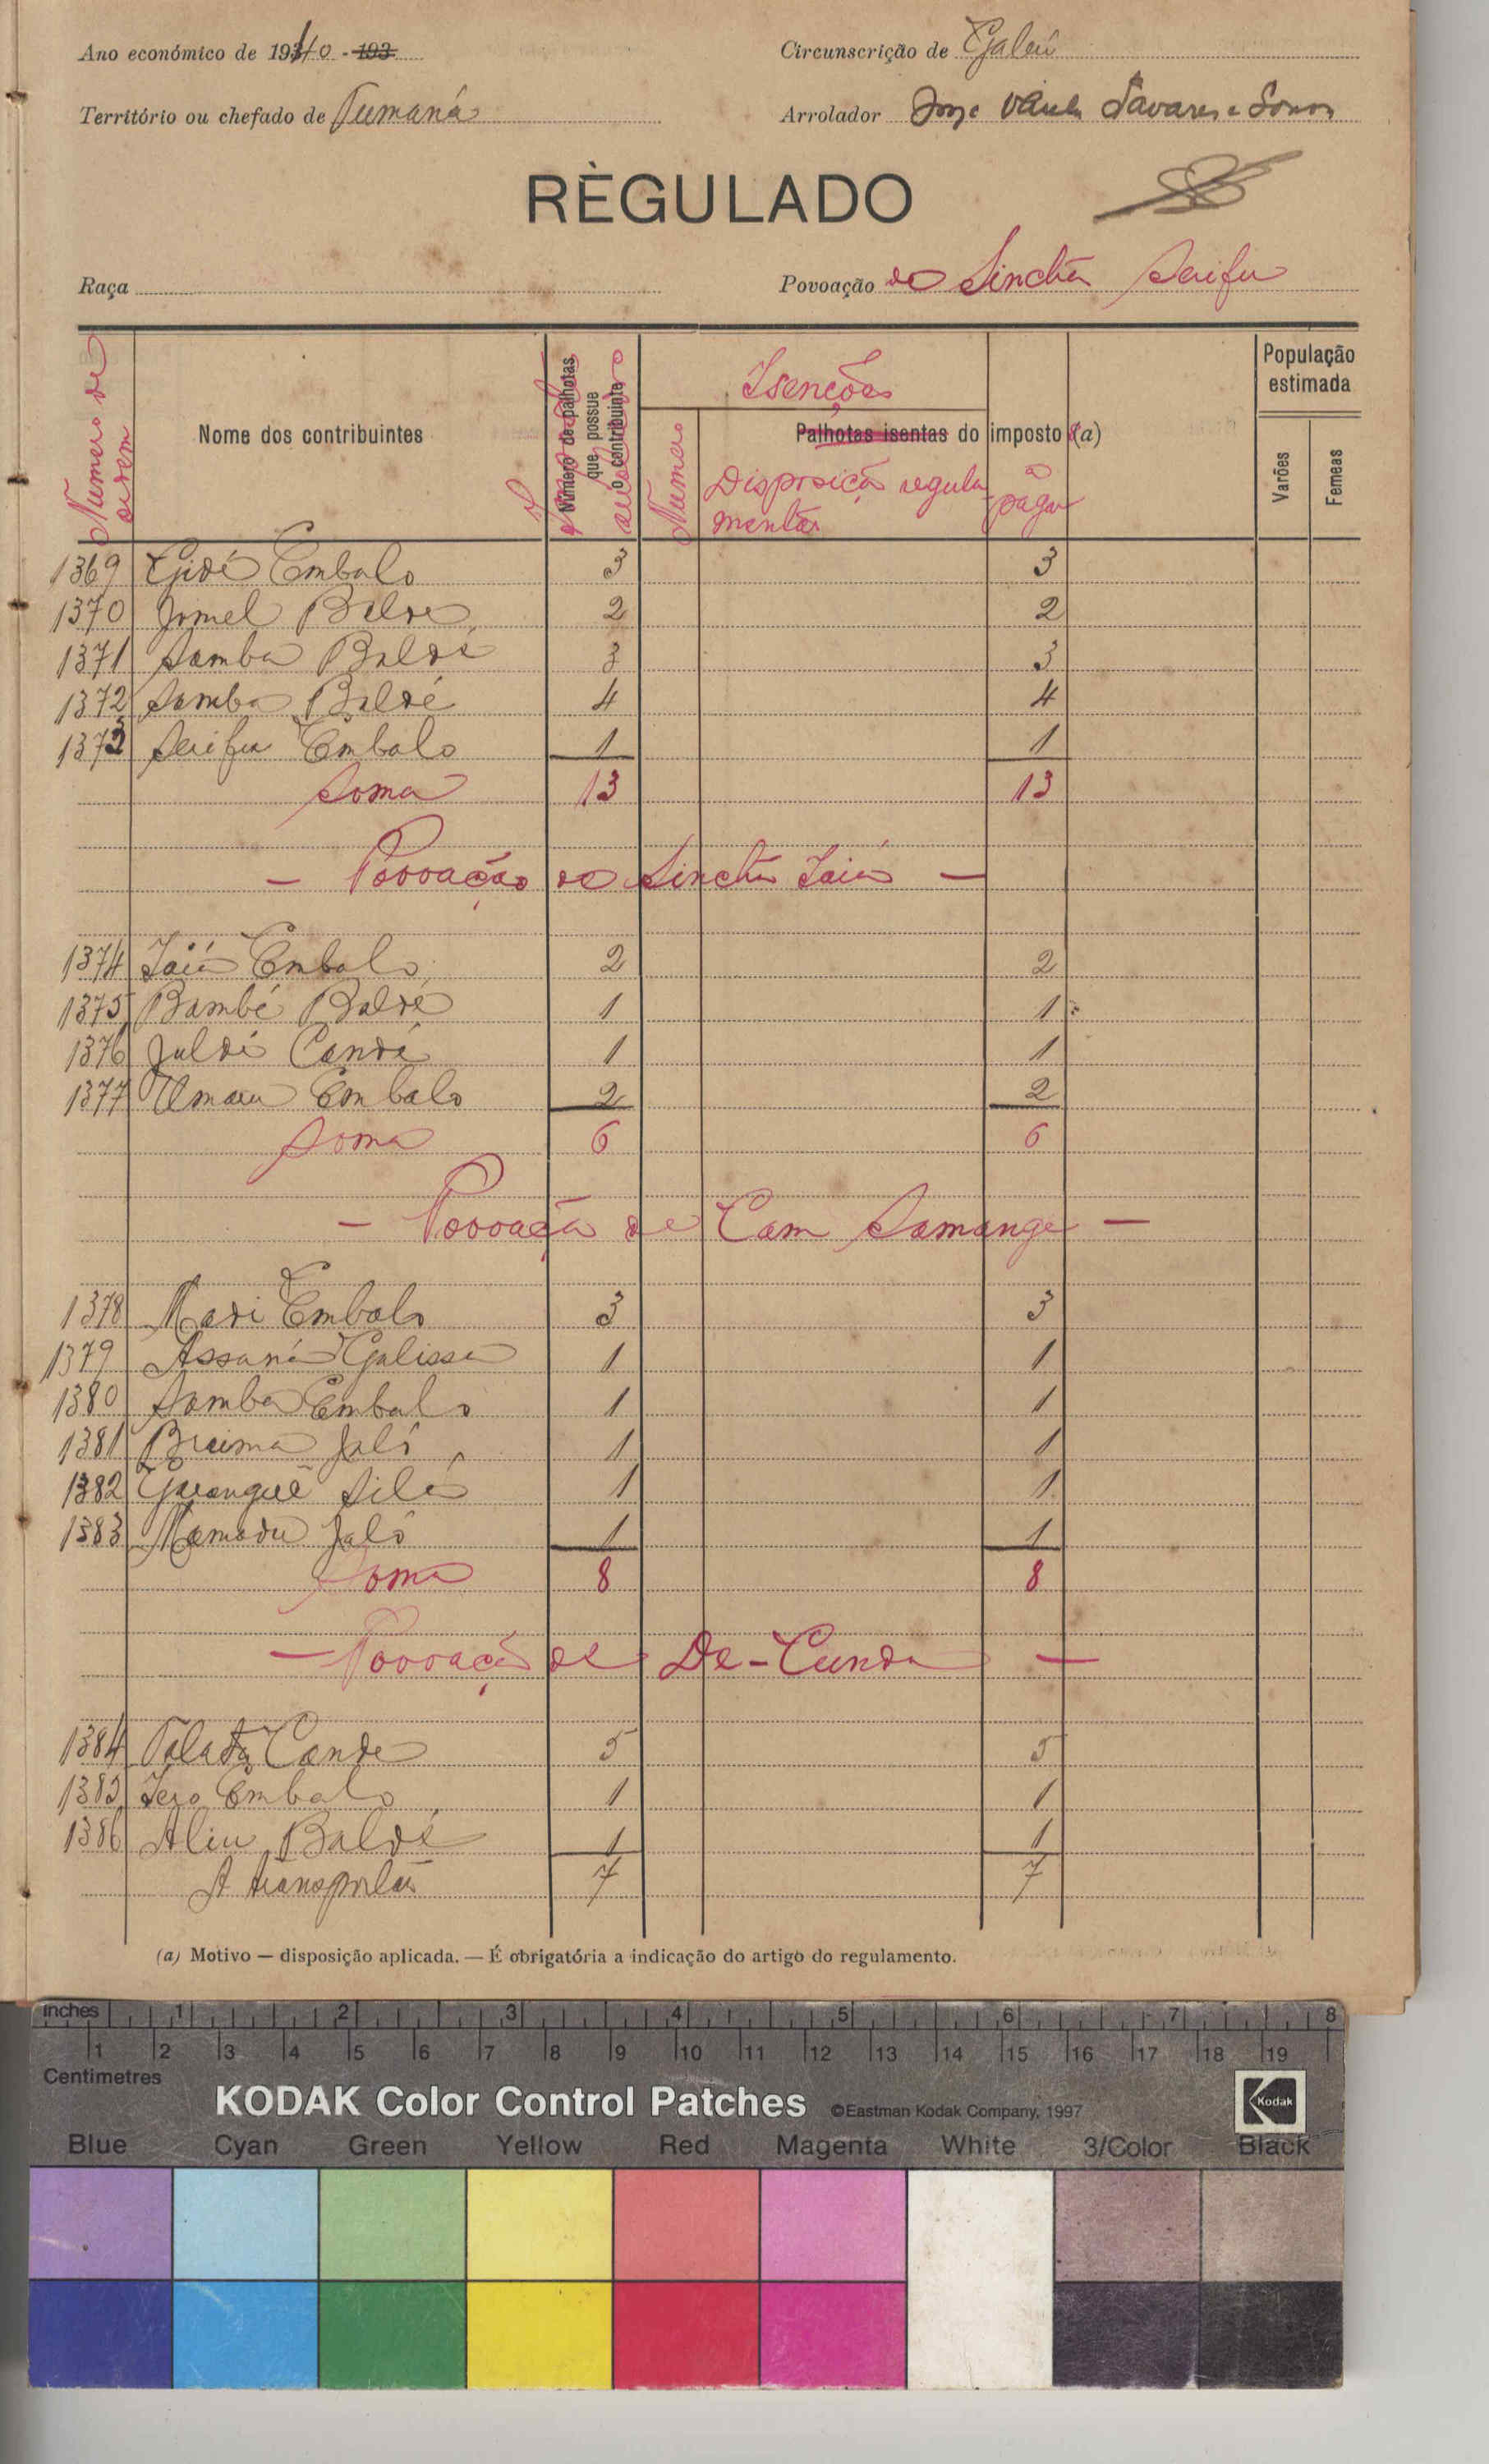 Ano económico de 1940 - 193
Circunscrição de Gabú
Território ou chefado de Tumaná
Arrolador Jorge Tavares e Sousa
RÈGULADO
Raça
Povoação de Sinchã Seifu
Numero de ordem
Nome dos contribuintes
Número de palhotas que possue o contribuinte
Isenções
Numero
Palhotas isentas do imposto (a)
Disposição regulamentar
a pagar
População estimada
Varões
Femeas
1369 Gidé Embalo 3 3
1370 Jomel Balde 2 2
1371 Samba Baldé 3 3
1372 Samba Baldé 4 4
1373 Seifu Embalo 1 1
Soma 13 13
- Povoação de Sinchã Iaiá -
1374 Iaiá Embalo 2 2
1375 Bambé Baldé 1 1
1376 Juldé Candé 1 1
1377 Umaru Embalo 2 2
Soma 6 6
- Povoação de Cam Samange -
1378 Madi Embalo 3 3
1379 Assaná Galissa 1 1
1380 Samba Embalo 1 1
1381 Braima Jaló 1 1
1382 Guranguê Silá 1 1
1383 Mamadu Jaló 1 1
Soma 8 8
- Povoação de De-Cunda -
1384 Talata Cande 5 5
1385 Iero Embalo 1 1
1386 Aliu Baldé 1 1
A transportar 7 7
(a) Motivo — disposição aplicada. — É obrigatória a indicação do artigo do regulamento.
inches 1 2 3 4 5 6 7 8
1 2 3 4 5 6 7 8 9 10 11 12 13 14 15 16 17 18 19
Centimetres
KODAK Color Control Patches ©Eastman Kodak Company, 1997 Kodak
Blue Cyan Green Yellow Red Magenta White 3/Color Black